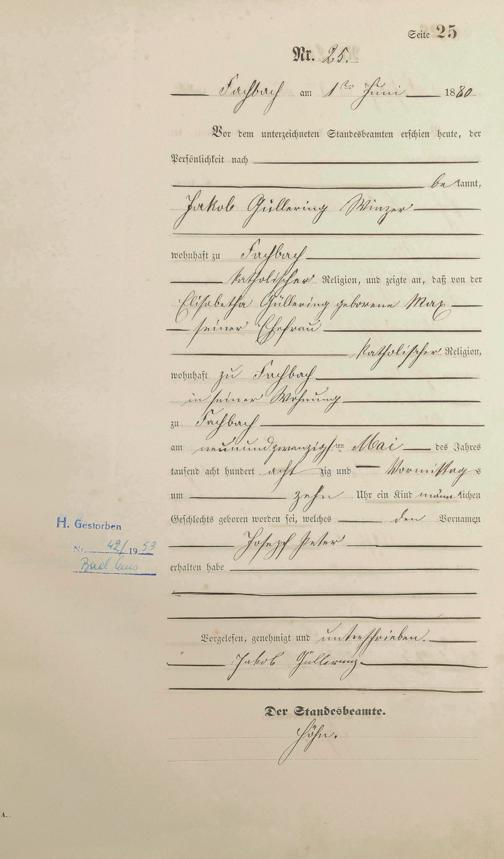 Seite 25
Nr. 25.
Fachbach am 1ten Juni 1880
Vor dem unterzeichneten Standesbeamten erschien heute, der
Persönlichkeit nach
bekannt,
Jakob Güllering Winzer
wohnhaft zu Fachbach
katholischer Religion, und zeigte an, daß von der
Elisabetha Güllering geborene Max
seiner Ehefrau
katholischer Religion,
wohnhaft zu Fachbach
in seiner Wohnung
zu Fachbach
am neunundzwanzigsten Mai des Jahres
tausend acht hundert achtzig und Vormittags
um zehn Uhr ein Kind männlichen
Geschlechts geboren worden sei, welches den Vornamen
Joseph Peter
erhalten habe
H. Gestorben
Nr. 42/1953
Bad Ems
Vorgelesen, genehmigt und unterschrieben.
Jakob Güllering
Der Standesbeamte.
Höhn.
A.